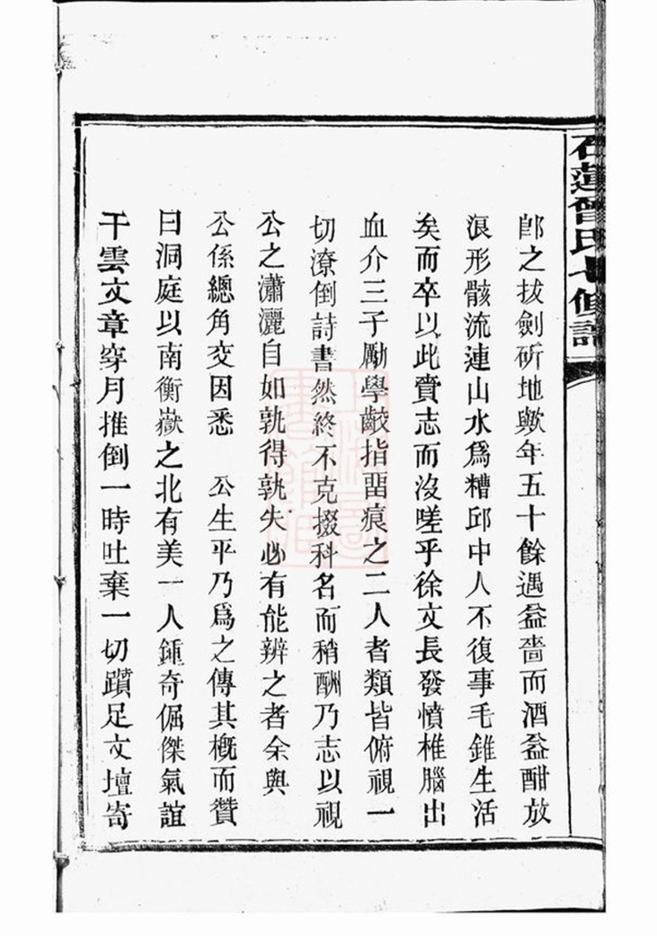 石蓮曾氏七修譜
郎之拔劍斫地歟年五十餘遇益嗇而酒益酣放
浪形骸流連山水爲糟邱中人不復事毛錐生活
矣而卒以此賫志而沒嗟乎徐文長發憤椎腦出
血介三子勵學齩指畱痕之二人者類皆俯視一
切潦倒詩書然終不克掇科名而稍酬乃志以視
公之瀟灑自如孰得孰失必有能辨之者余與
公係總角交因悉 公生平乃爲之傳其槪而贊
曰洞庭以南衡嶽之北有美一人鍾奇倔傑氣誼
干雲文章穿月推倒一時吐棄一切躓足文壇寄